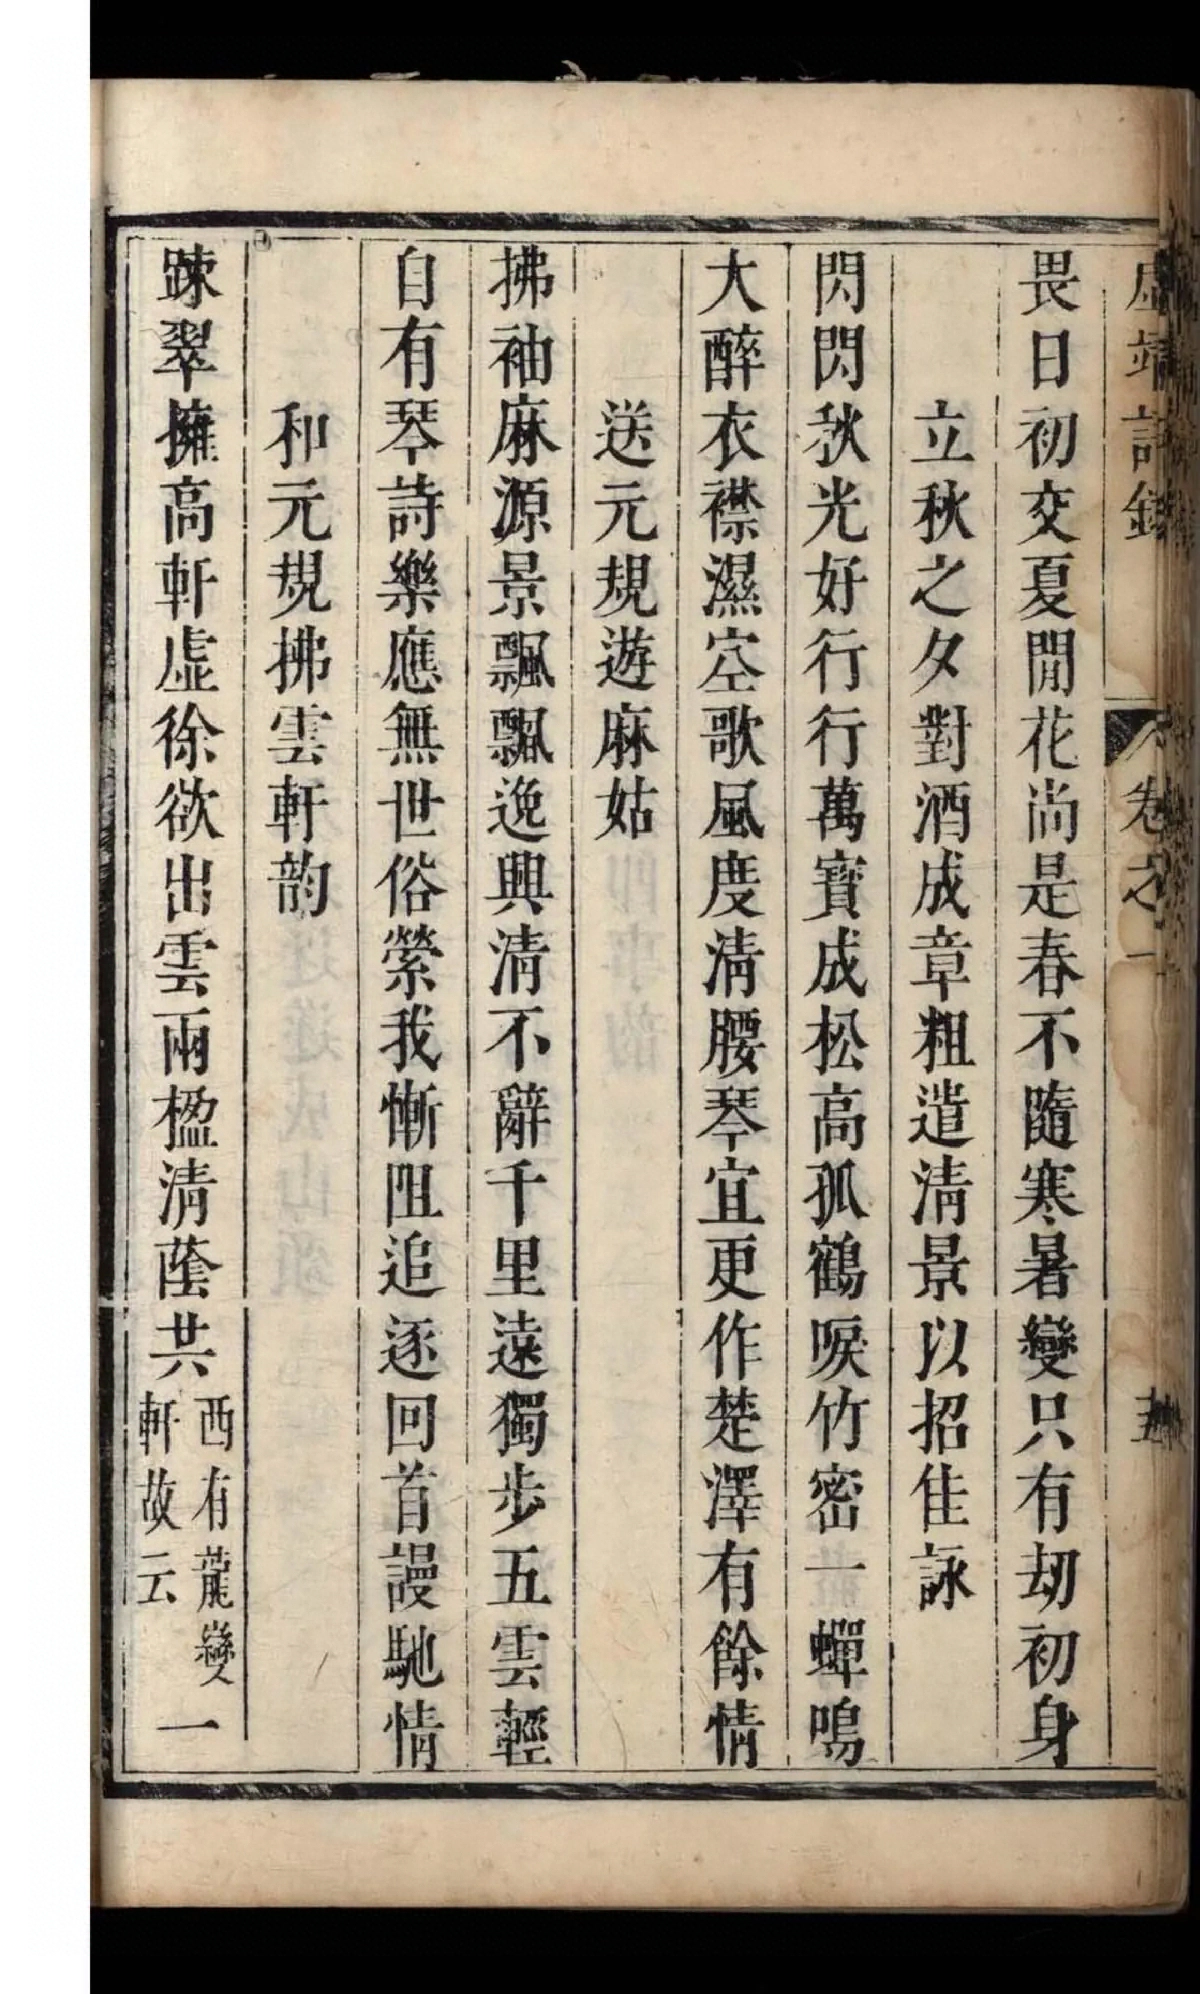 虛靖詞錄 卷之一 五
畏日初交夏閒花尚是春不隨寒暑變只有刼初身
立秋之夕對酒成章粗遣清景以招佳詠
閃閃秋光好行行萬寶成松高孤鶴唳竹密一蟬鳴
大醉衣襟濕空歌風度清腰琴宜更作楚澤有餘情
送元規遊麻姑
拂袖麻源景飄飄逸興清不辭千里遠獨步五雲輕
自有琴詩樂應無世俗縈我慚阻追逐回首謾馳情
和元規拂雲軒韵
踈翠擁高軒虛徐欲出雲兩楹清蔭共西有蘢變軒故云一